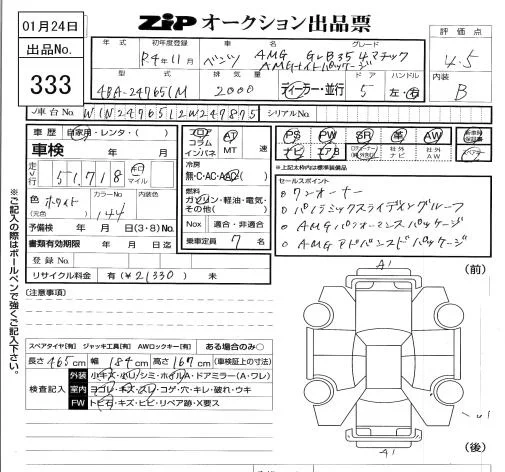 01月24日
出品No.
333
ZIP オークション出品票
評価点
4.5
内装
B
年式 初年度登録 車名 グレード
R.4年11月 ベンツ AMG GLB35 4マチック
AMGナイトパッケージ
型式 排気量 ドア ハンドル
4BA-247651M 2000 ディーラー・並行 5 左・右
車台No. W1N2476512W247875 シリアルNo.
車歴 自家用・レンタ・( )
車検 年 月
走行 51,718 km マイル
色 ホワイト
(元色)
カラーNo 内装色
144
予備検 年 月 日(3・8)No.
書類有効期限 年 月 日迄
登録No.
リサイクル料金 有(¥21330) 未
フロア
コラム
インパネ
AT
MT 速
冷房
無・C・AC・AAC
燃料
ガソリン・軽油・電気・
その他( )
Nox 適合・非適合
乗車定員 7 名
PS PW SR 革 AW
ナビ エアB 社外ナビ 社外AW
新車時保証書
※上記太枠内は標準装備品
セールスポイント
ワンオーナー
パノラミックスライディングルーフ
AMGパフォーマンスパッケージ
AMGアドバンスドパッケージ
※ご記入の際はボールペンで強くご記入下さい。
(注意事項)
スペアタイヤ[有] ジャッキ工具[有] AWロックキー[有] ある場合のみ○
長さ 465cm 幅 184cm 高さ 167cm (車検証上の寸法)
検査記入
外装 小キズ・小U・シミ・ホイルA・ドアミラー(A・ワレ)
室内 ヨゴレ・キズ・スレ・コゲ・穴・キレ・破れ・ウキ
FW トビ石・キズ・ヒビ・リペア跡・X要ス
A1
(前)
A1
(後)